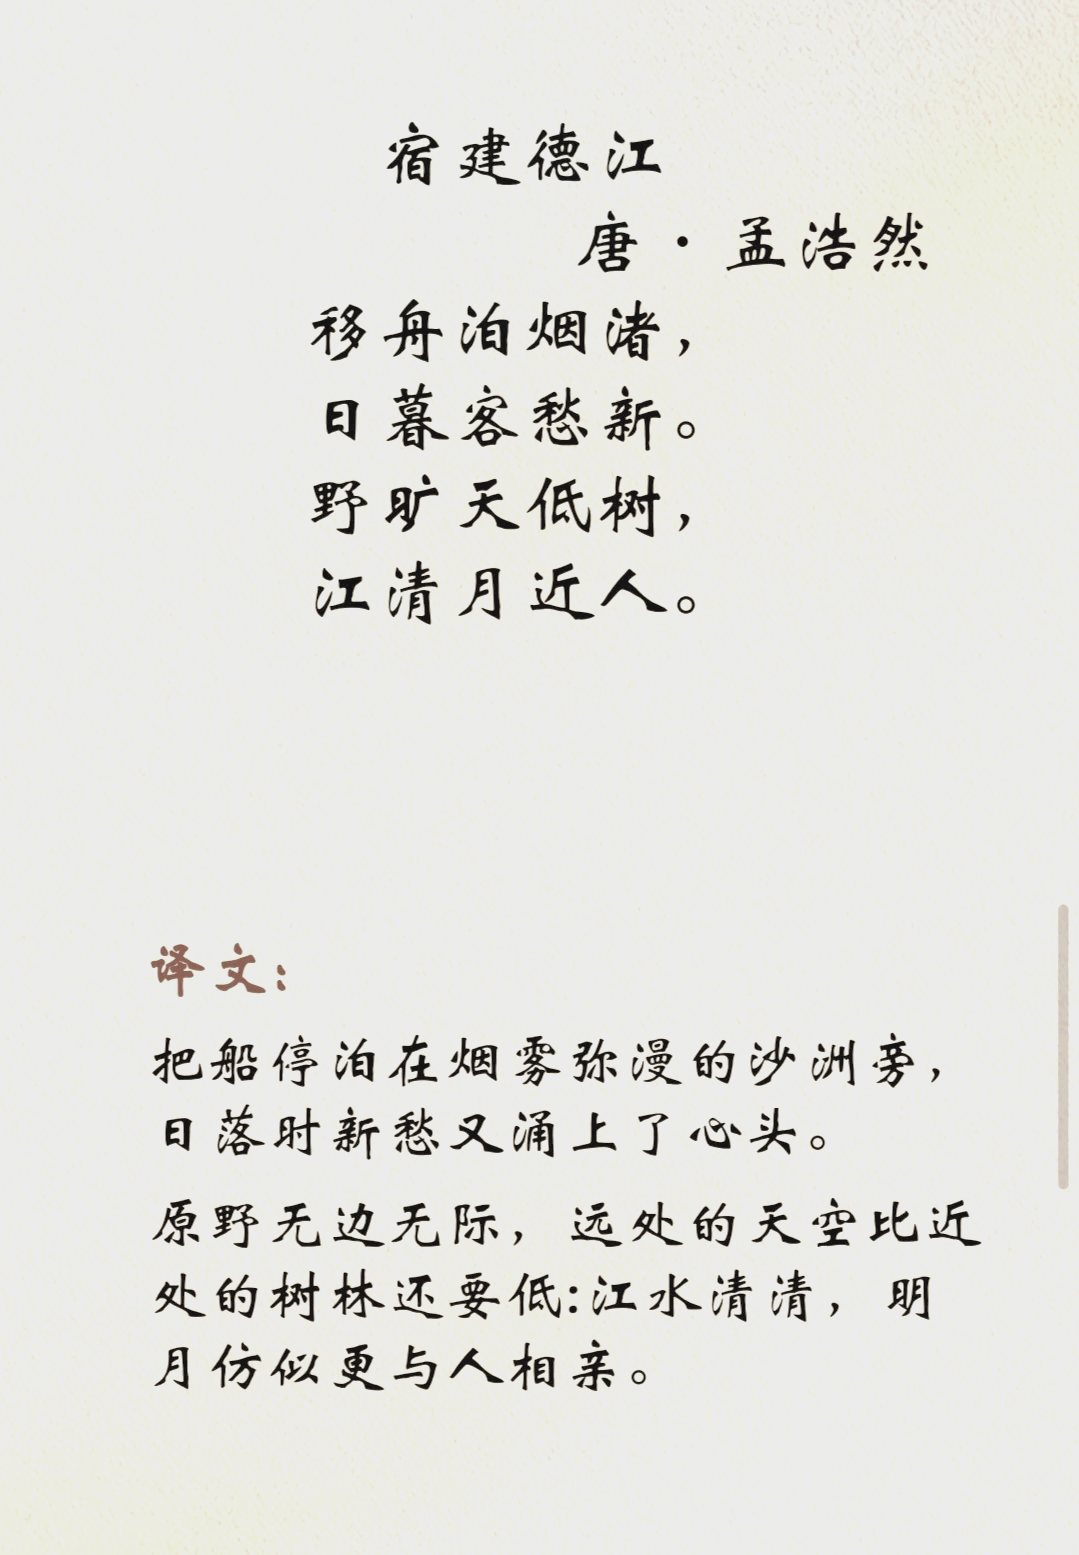 宿建德江
唐·孟浩然
移舟泊烟渚，
日暮客愁新。
野旷天低树，
江清月近人。
译文：
把船停泊在烟雾弥漫的沙洲旁，
日落时新愁又涌上了心头。
原野无边无际，远处的天空比近
处的树林还要低:江水清清，明
月仿似更与人相亲。